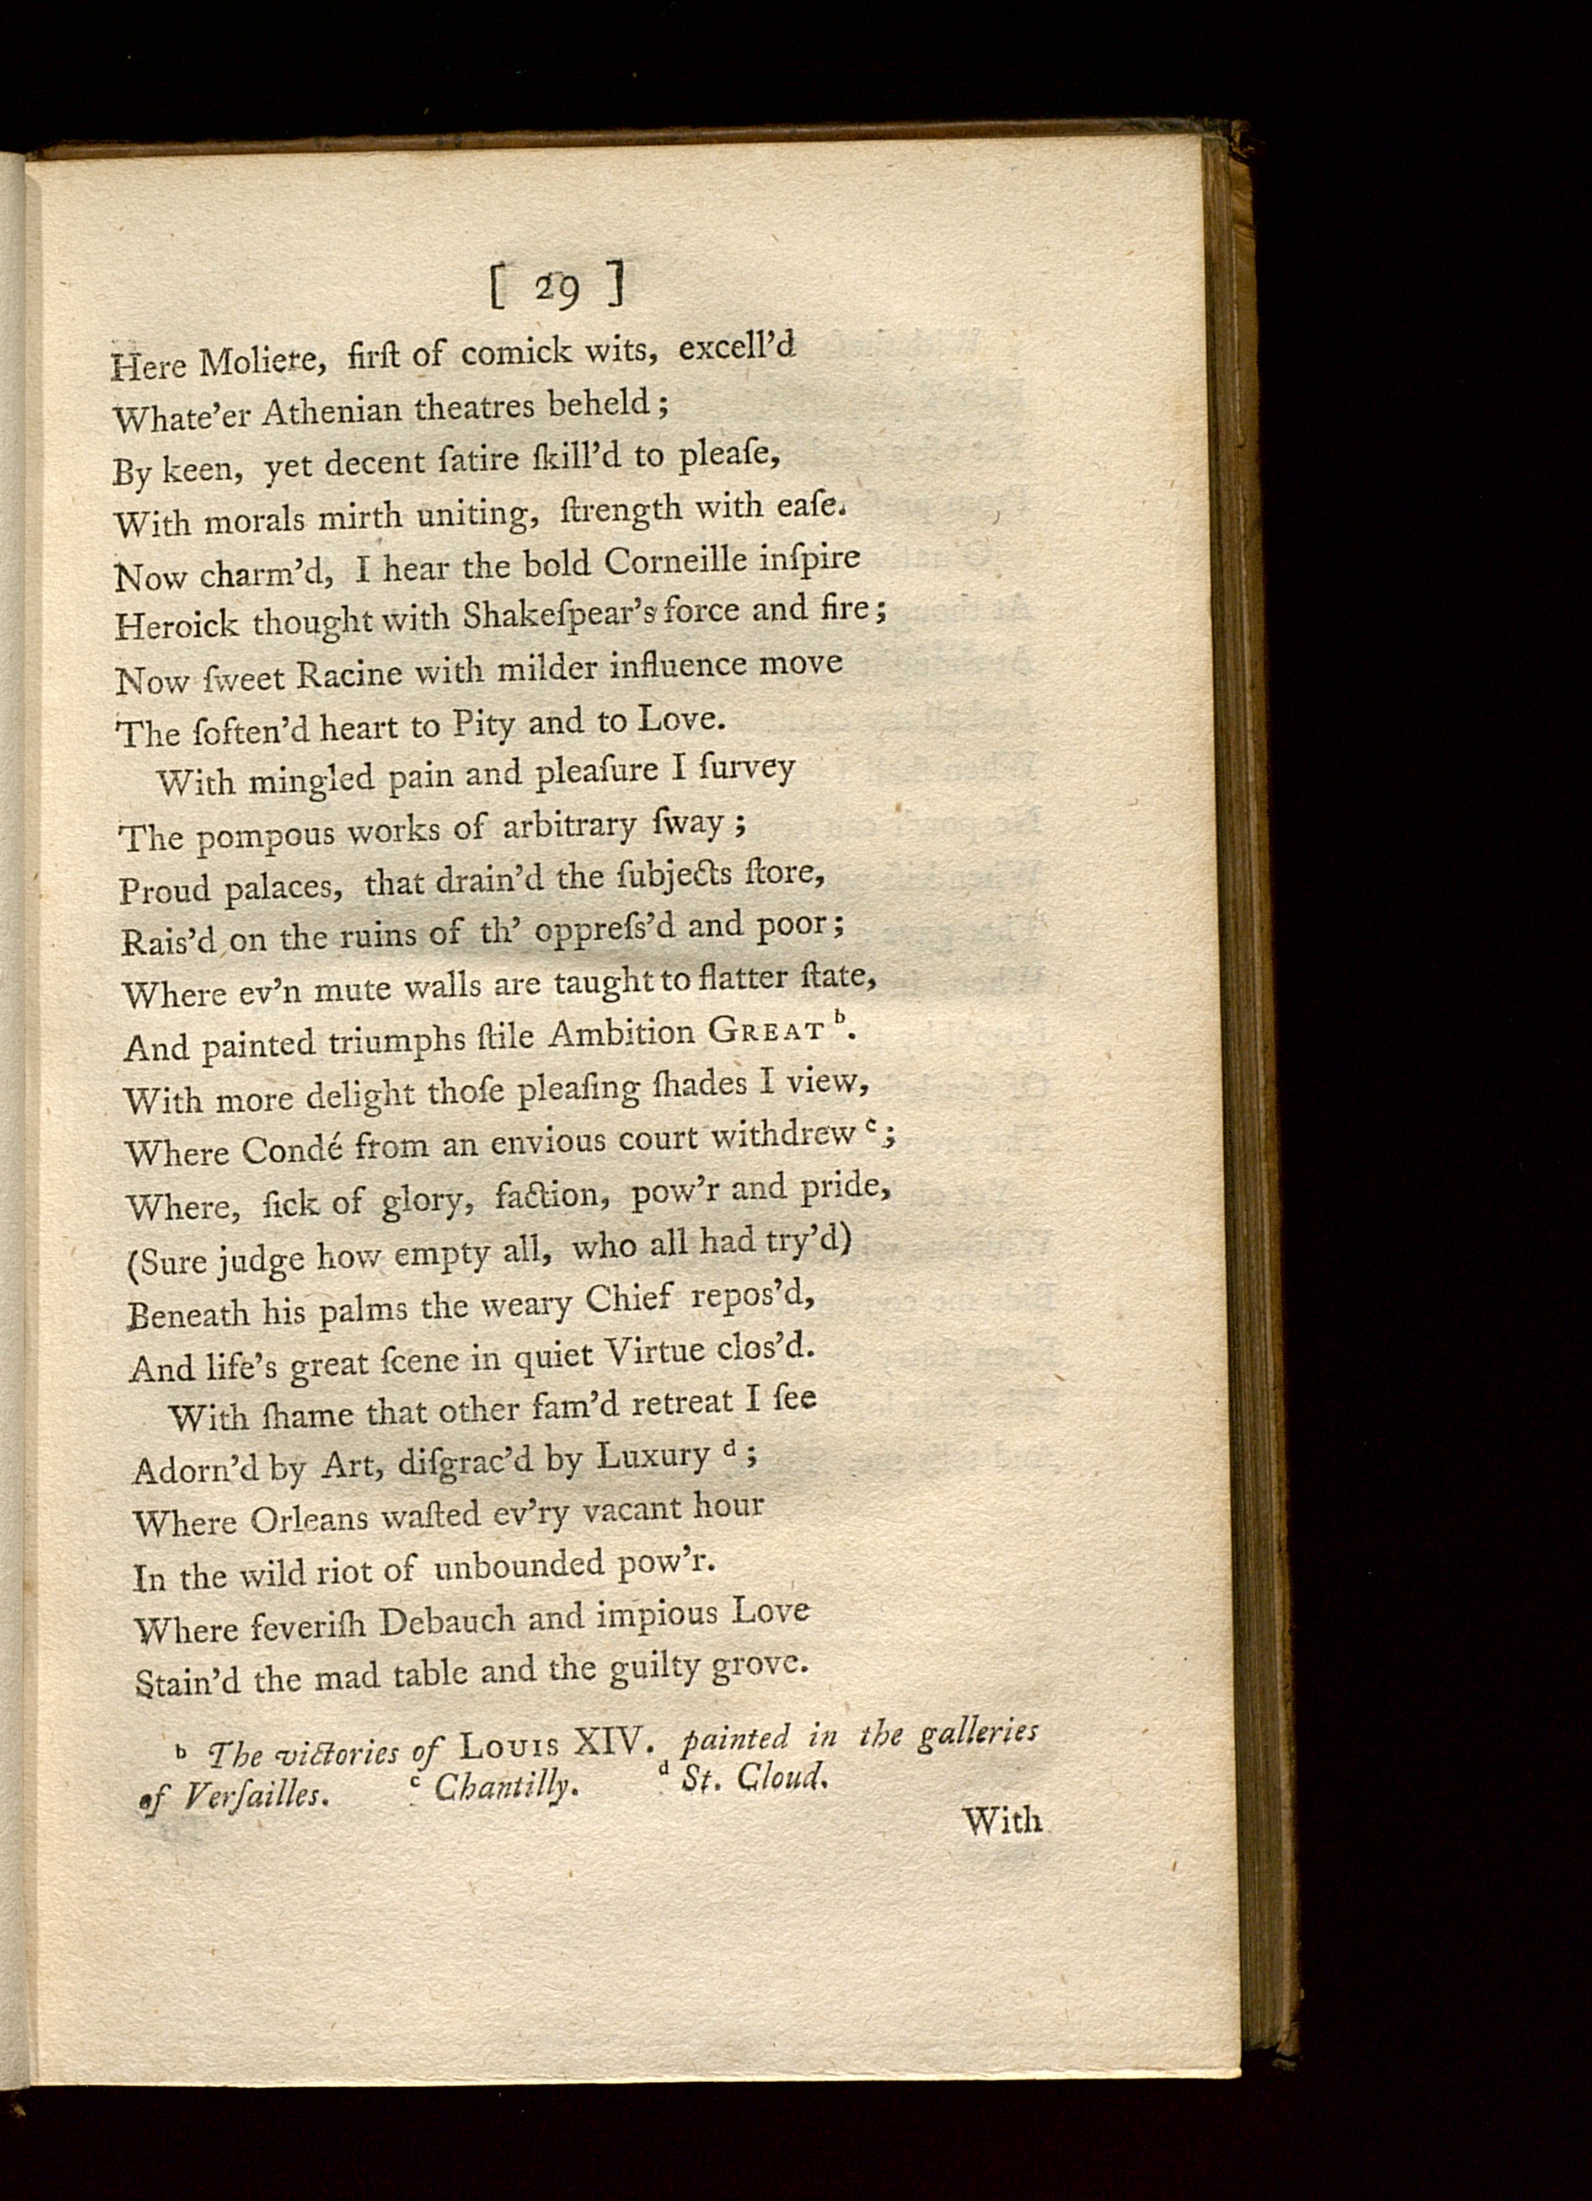 [ 29 ]
Here Moliere, firſt of comick wits, excell'd
Whate'er Athenian theatres beheld;
By keen, yet decent ſatire ſkill'd to pleaſe,
With morals mirth uniting, ſtrength with eaſe.
Now charm'd, I hear the bold Corneille inſpire
Heroick thought with Shakeſpear's force and fire;
Now ſweet Racine with milder influence move
The ſoften'd heart to Pity and to Love.
With mingled pain and pleaſure I ſurvey
The pompous works of arbitrary ſway;
Proud palaces, that drain'd the ſubjects ſtore,
Rais'd on the ruins of th' oppreſs'd and poor;
Where ev'n mute walls are taught to flatter ſtate,
And painted triumphs ſtile Ambition GREAT b.
With more delight thoſe pleaſing ſhades I view,
Where Condé from an envious court withdrew c;
Where, ſick of glory, faction, pow'r and pride,
(Sure judge how empty all, who all had try'd)
Beneath his palms the weary Chief repos'd,
And life's great ſcene in quiet Virtue clos'd.
With ſhame that other fam'd retreat I ſee
Adorn'd by Art, diſgrac'd by Luxury d;
Where Orleans waſted ev'ry vacant hour
In the wild riot of unbounded pow'r.
Where feveriſh Debauch and impious Love
Stain'd the mad table and the guilty grove.
b The victories of LOUIS XIV. painted in the galleries
of Verſailles. c Chantilly. d St. Cloud.
With